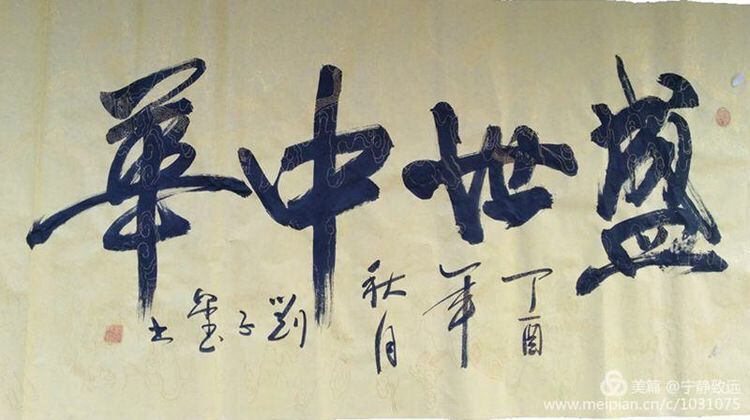 盛世中華
丁酉
年
秋月
劉子墨书
美篇 @宁静致远
www.meipian.cn/c/1031075